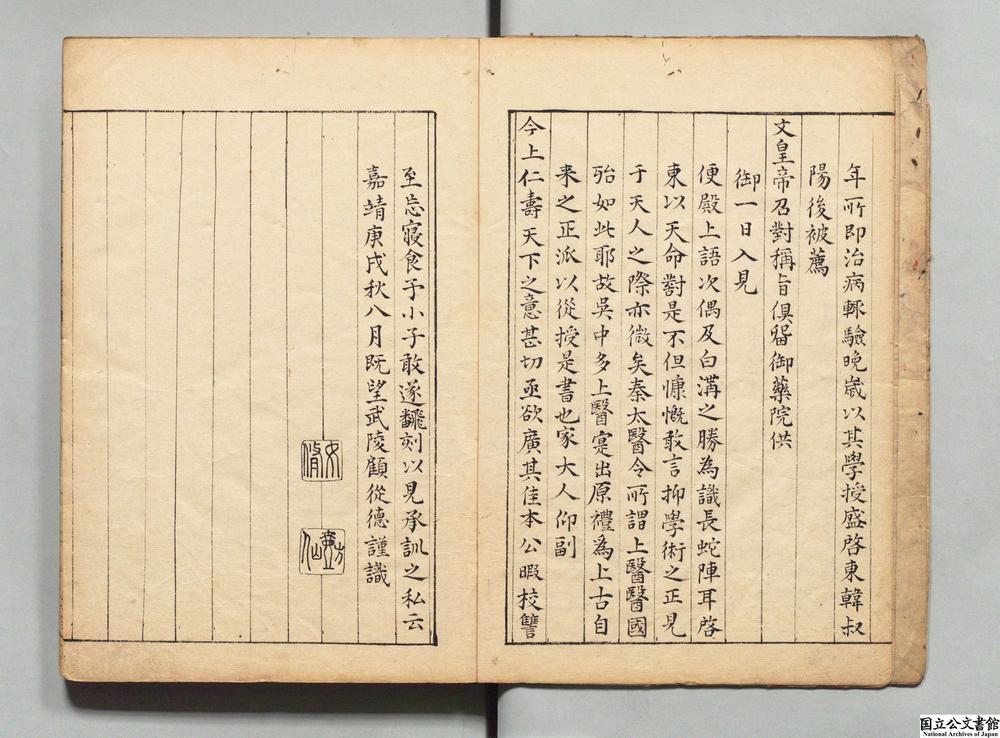 年所即治病輒驗晚歲以其學授盛啓東韓叔
陽後被薦
文皇帝召對稱旨俱留御藥院供
御一日入見
便殿上語次偶及白溝之勝為識長蛇陣耳啓
東以天命對是不但慷慨敢言抑學術之正見
于天人之際亦微矣秦太醫令所謂上醫醫國
殆如此耶故吳中多上醫寔出原禮為上古自
来之正派以從授是書也家大人仰副
今上仁壽天下之意甚切亟欲廣其佳本公暇校讐
至忘寢食予小子敢遂翻刻以見承訓之私云
嘉靖庚戌秋八月既望武陵顧從德謹識
国立公文書館
National Archives of Japan